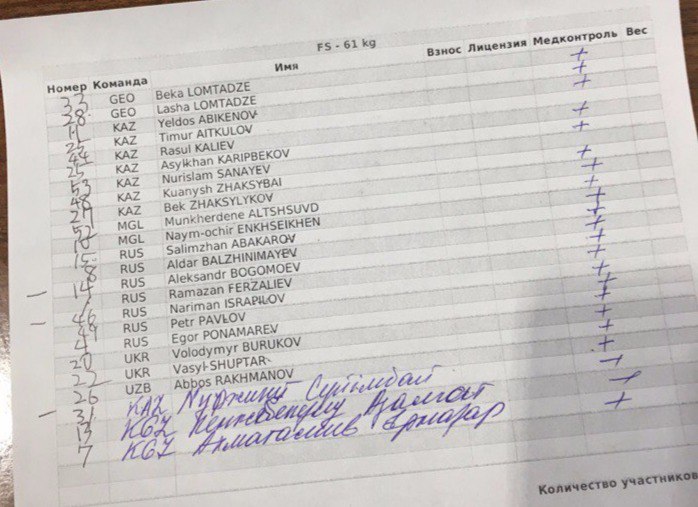 FS - 61 kg
Номер Команда Имя Взнос Лицензия Медконтроль Вес
33 GEO Beka LOMTADZE +
38 GEO Lasha LOMTADZE +
11 KAZ Yeldos ABIKENOV +
KAZ Timur AITKULOV +
44 KAZ Rasul KALIEV +
25 KAZ Asylkhan KARIPBEKOV +
53 KAZ Nurislam SANAYEV +
48 KAZ Kuanysh ZHAKSYBAI +
27 KAZ Bek ZHAKSYLYKOV +
52 MGL Munkherdene ALTSHSUVD +
MGL Naym-ochir ENKHSEIKHEN +
15 RUS Salimzhan ABAKAROV +
8 RUS Aldar BALZHINIMAYEV +
14 RUS Aleksandr BOGOMOEV +
RUS Ramazan FERZALIEV +
46 RUS Nariman ISRAPILOV +
49 RUS Petr PAVLOV +
4 RUS Egor PONAMAREV +
20 UKR Volodymyr BURUKOV +
22 UKR Vasyl SHUPTAR +
26 UZB Abbos RAKHMANOV +
31 KAZ +
13 KGZ Азамат +
7 KGZ +
Количество участников